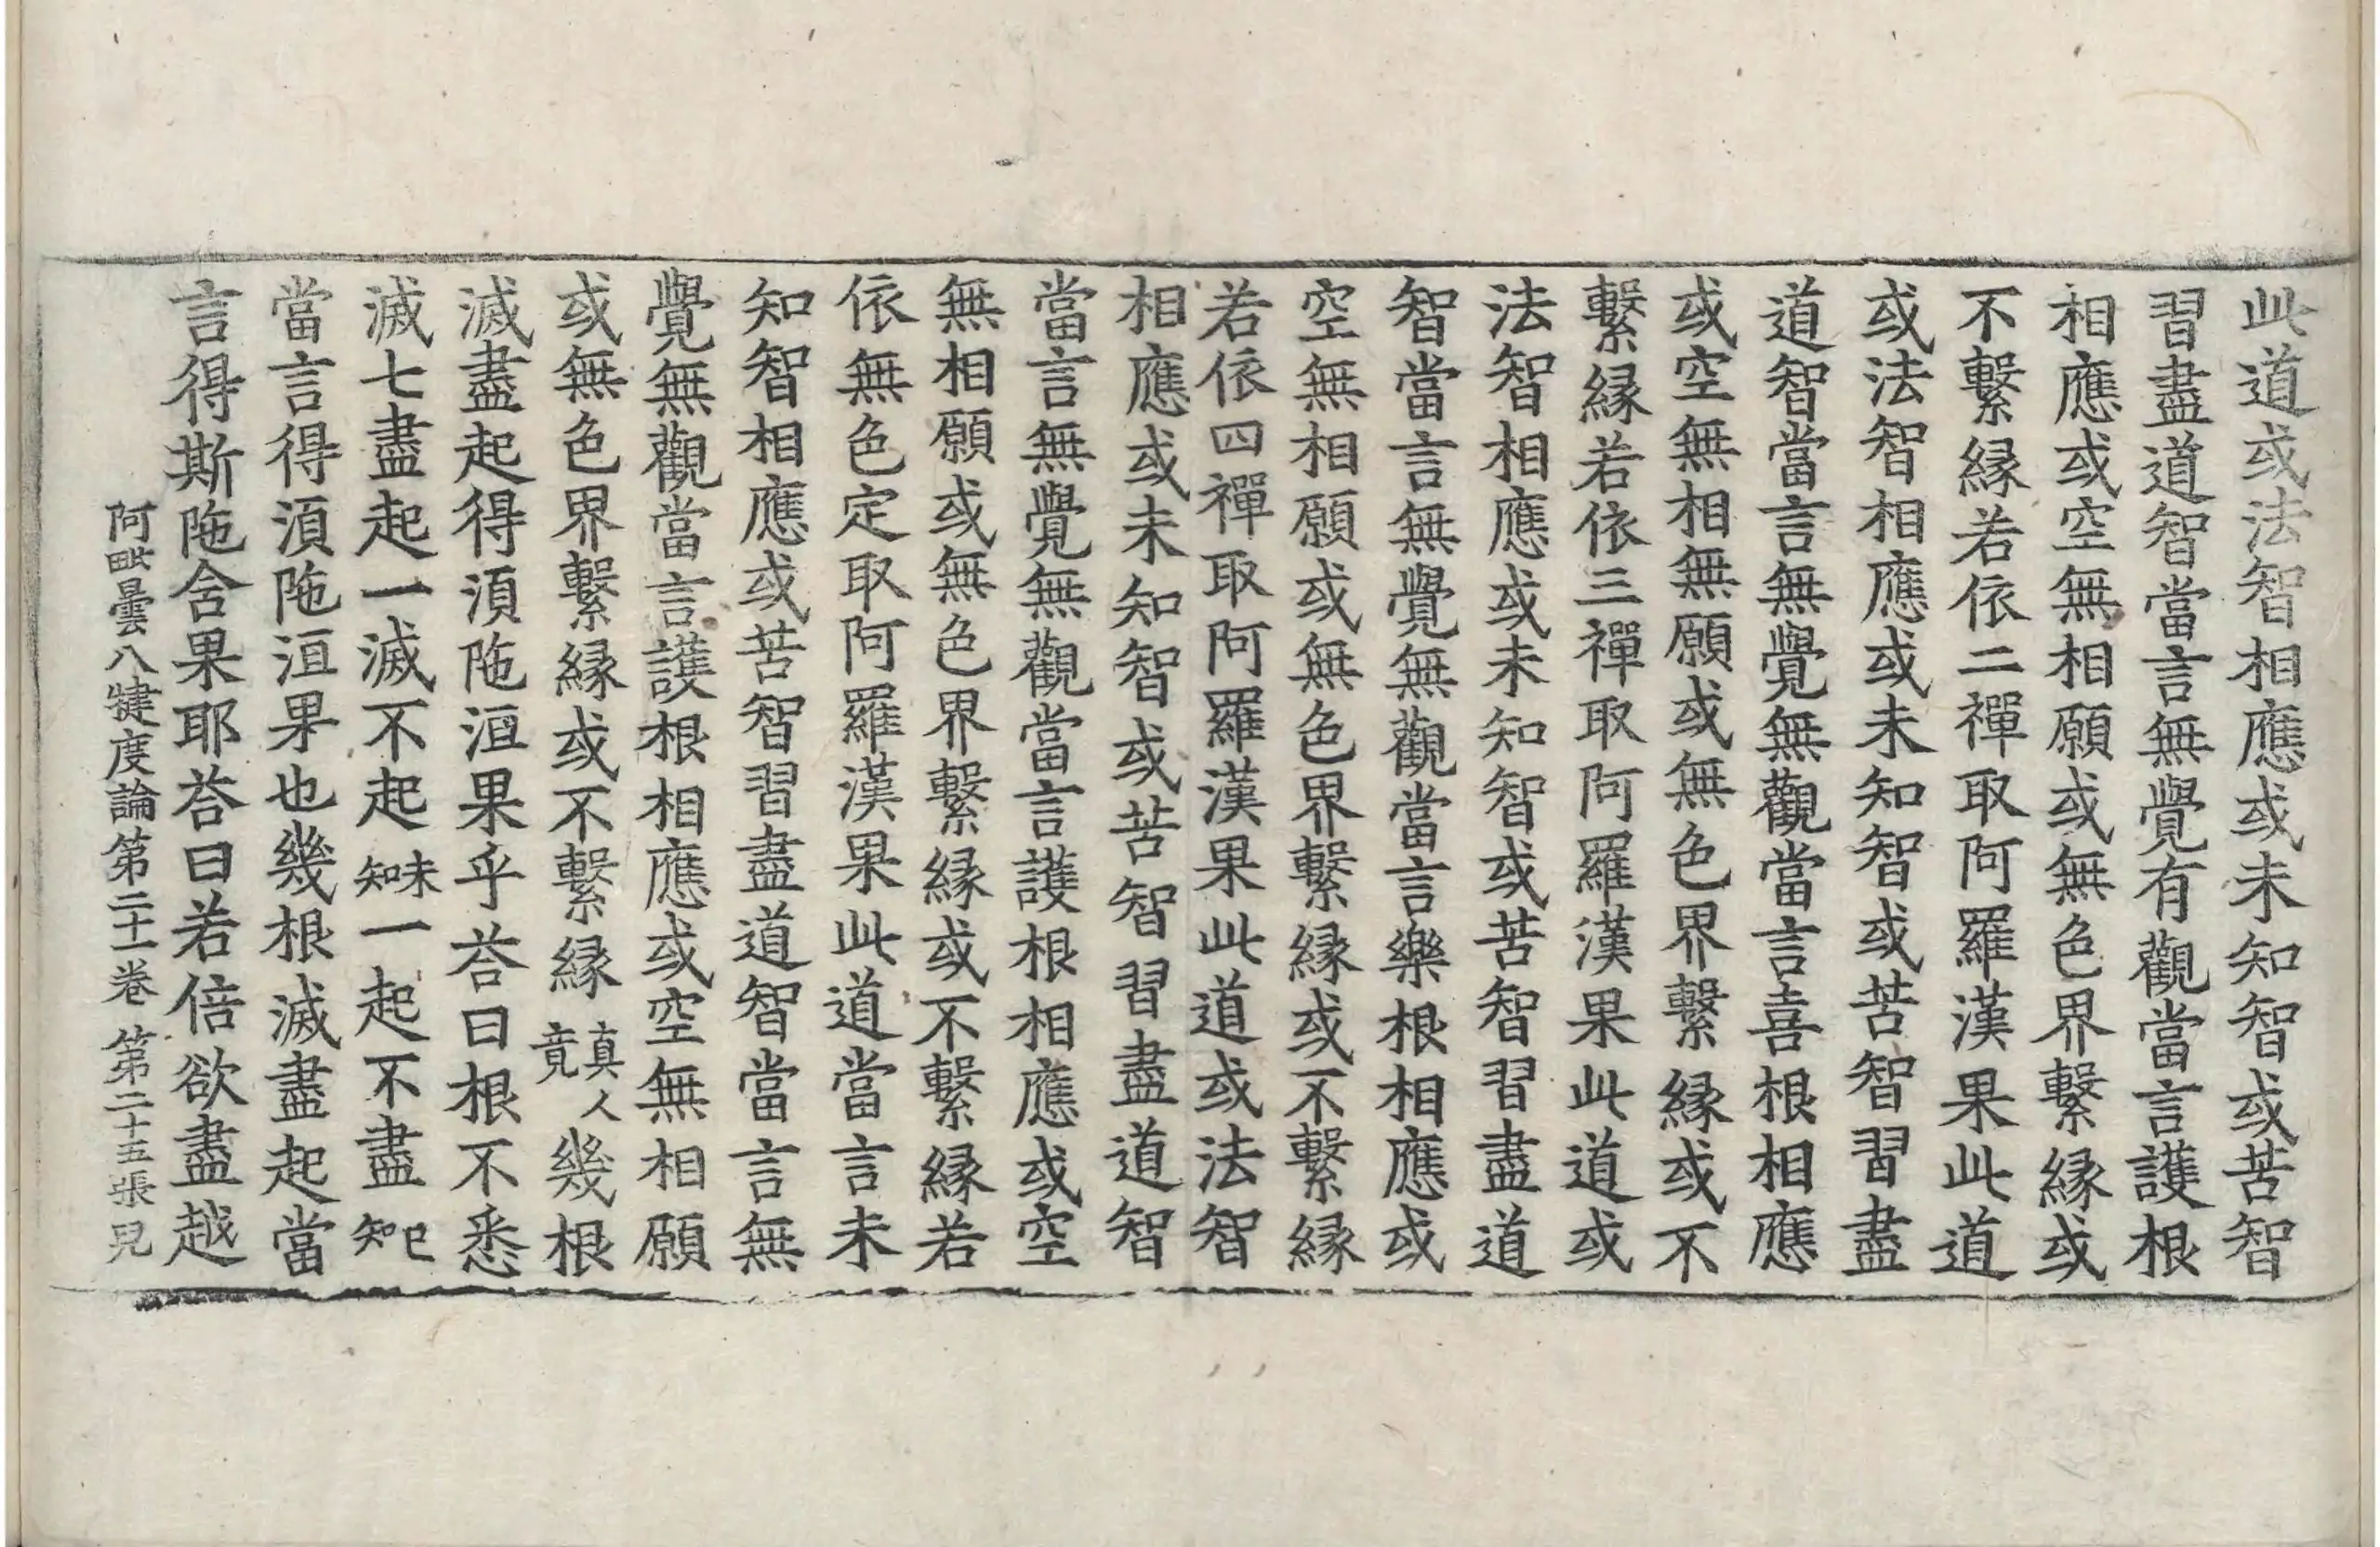 此道或法智相應或未知智或苦智
習盡道智當言無覺有觀當言護根
相應或空無相願或無色界繫緣或
不繫縁若依二禪取阿羅漢果此道
或法智相應或未知智或苦智習盡
道智當言無覺無觀當言喜根相應
或空無相無願或無色界繫縁或不
繫縁若依三禪取阿羅漢果此道或
法智相應或未知智或苦智習盡道
智當言無覺無觀當言樂根相應或
空無相願或無色界繫縁或不繫縁
若依四禪取阿羅漢果此道或法智
相應或未知智或苦智習盡道智
當言無覺無觀當言護根相應或空
無相願或無色界繫縁或不繫縁若
依無色定取阿羅漢果此道當言未
知智相應或苦智習盡道智當言無
覺無觀當言護根相應或空無相願
或無色界繫縁或不繫縁真人竟幾根
滅盡起得湏陁洹果乎荅曰根不悉
滅七盡起一滅不起未知一起不盡已知
當言得湏陁洹果也幾根滅盡起當
言得斯陁含果耶荅曰若倍欲盡越
阿毗曇八犍度論第二十一卷 第二十五張 見